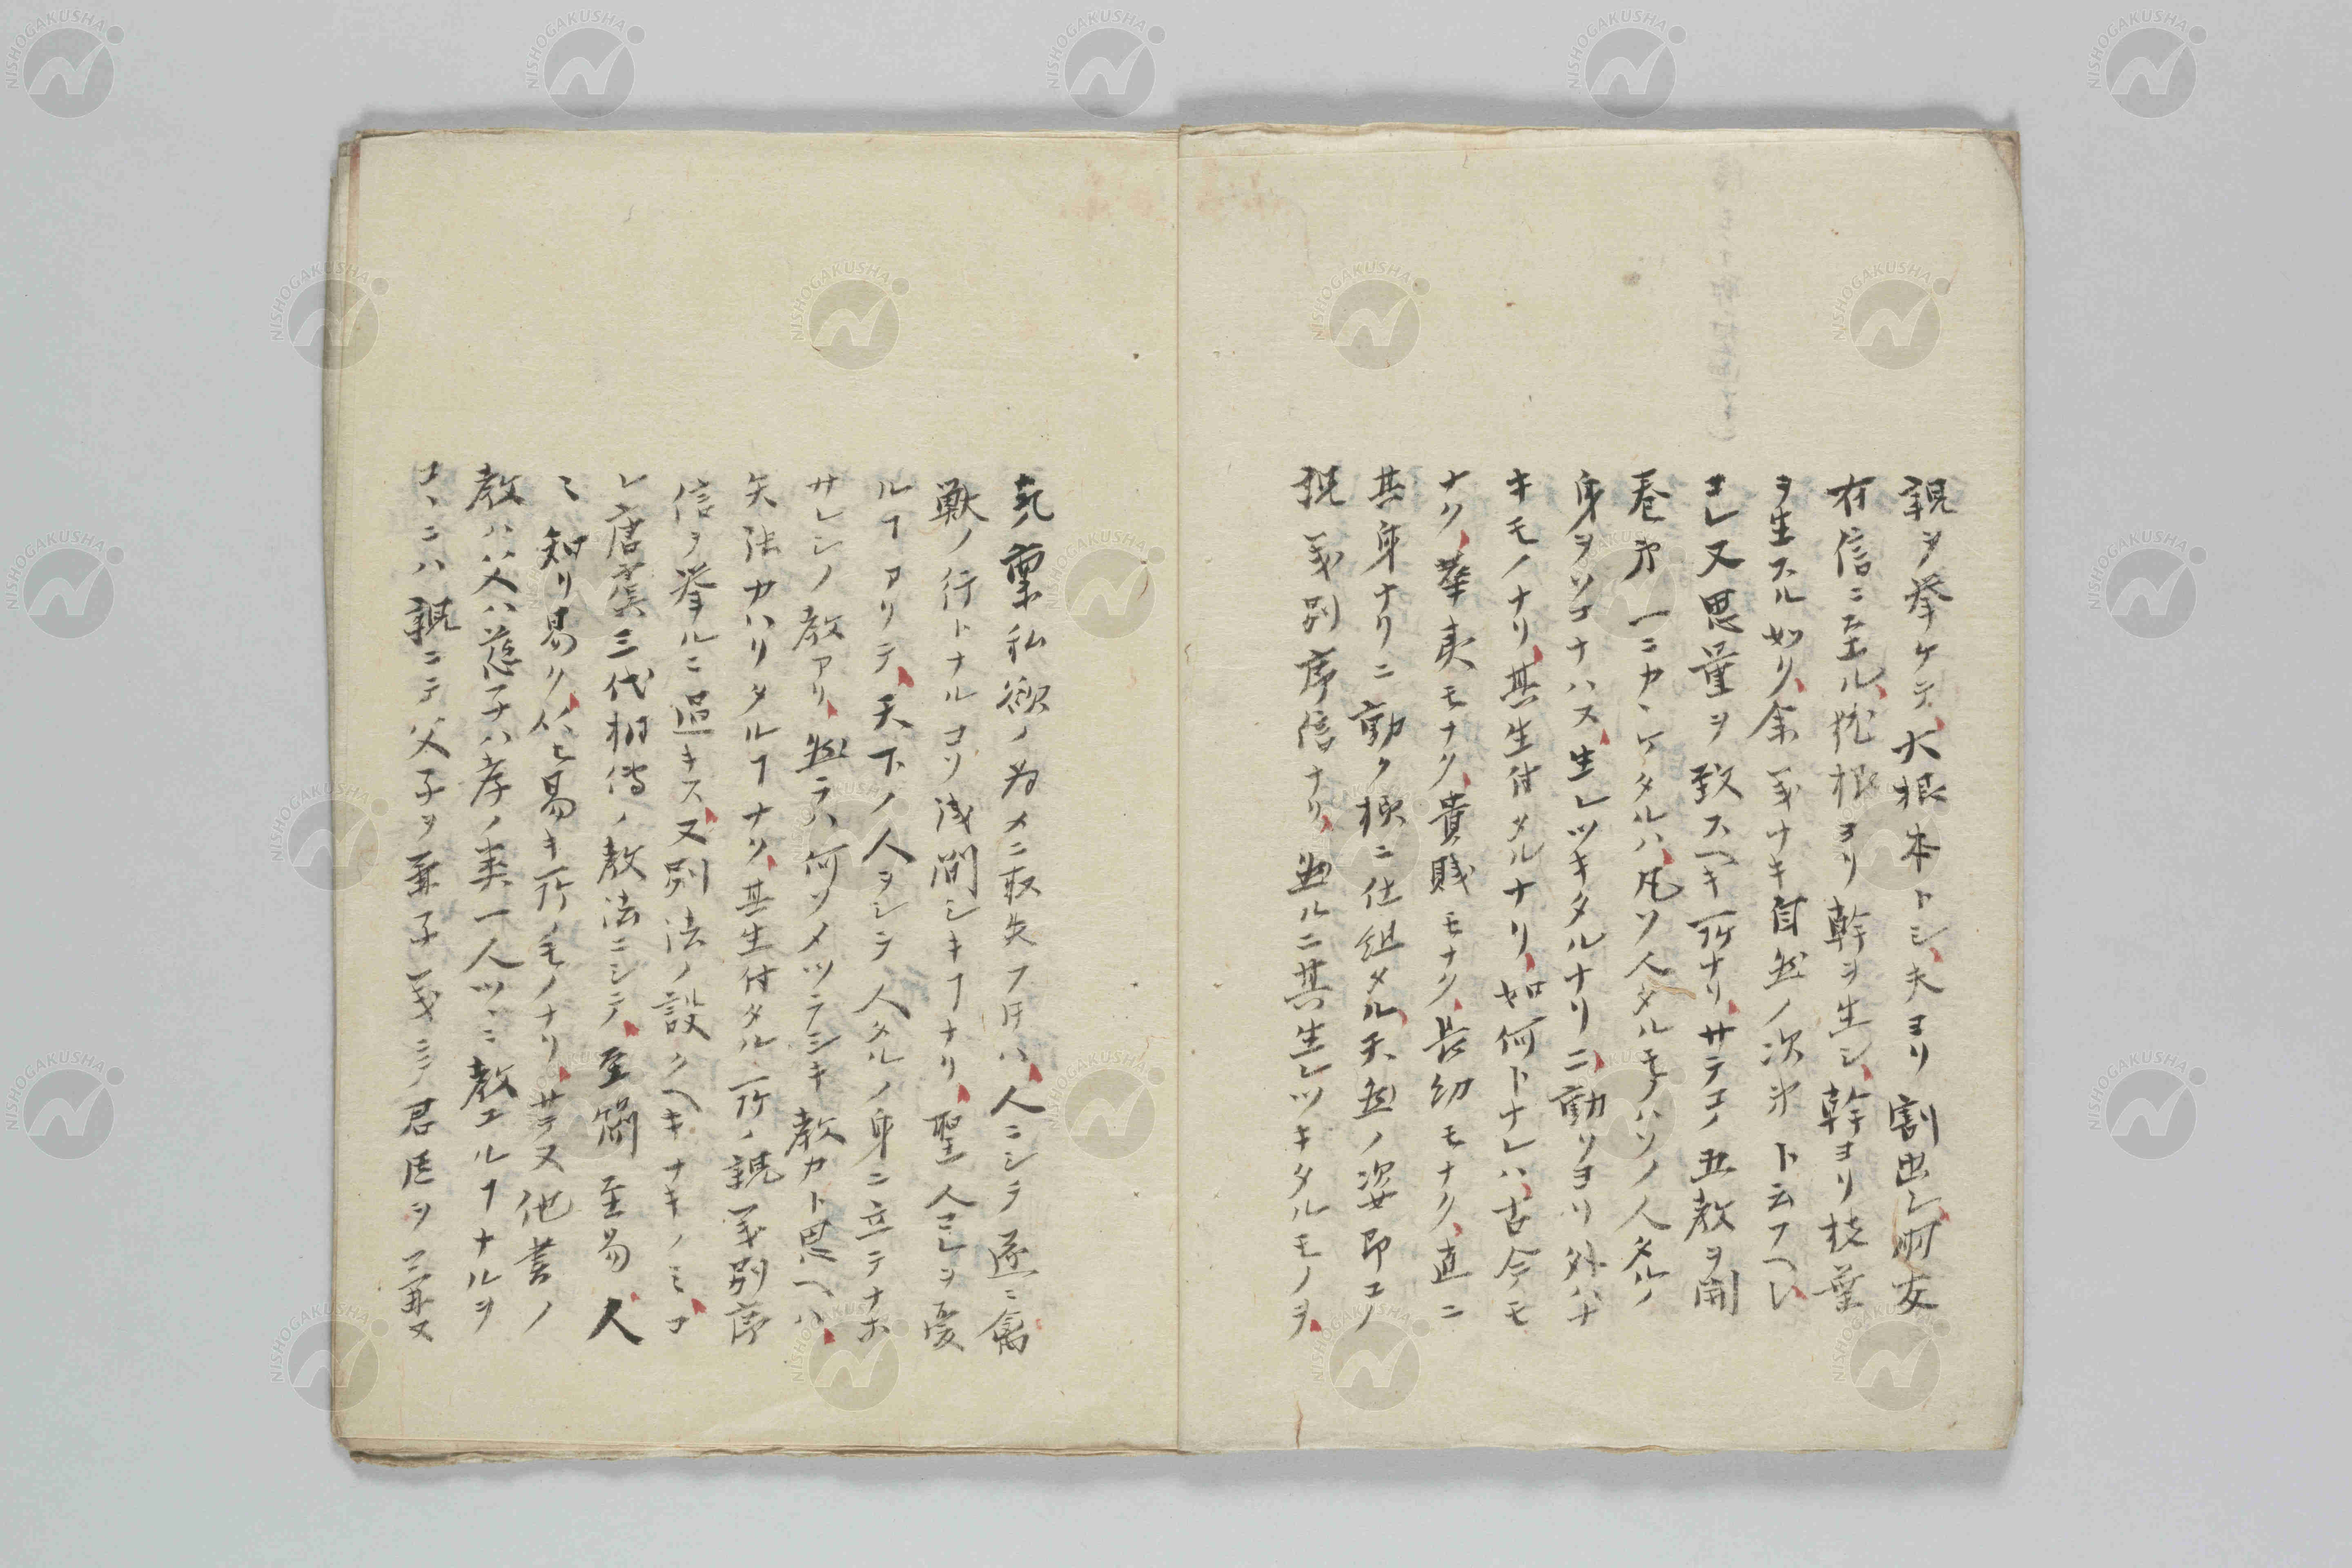 親ヲ挙ケテ、大根本トシ、夫ヨリ割出シ、朋友
有信ニ至ル、猶根ヨリ幹ヲ生シ、幹ヨリ枝葉
ヲ生スル如ク、余義ナキ自然ノ次第ト云フヘシ、
コレ又思量ヲ致スヘキ所ナリ、サテコノ五教ヲ開
巻第一ニカヽケタルハ、凡ソ人タルモノハソノ人タルノ
身ヲソコナハス、生レツキタルナリニ、動クヨリ外ハナ
キモノナリ、其生付タルナリ、如何トナレハ、古今モ
ナク、華夷モナク、貴賤モナク、長幼モナク、直ニ
其身ナリニ動ク様ニ仕組タル、天然ノ姿即コノ
親義別序信ナリ、然ルニ其生レツキタルモノヲ、
気稟私欲ノ為メニ取失フ𪜈ハ、人ニシテ遂ニ禽
獣ノ行トナルヨリ浅間シキヿナリ、聖人コレヲ憂
ルヿアリテ、天下ノ人ヲシテ人タルノ身ニ立テナホ
サレシノ教アリ、然ラハ何ソメツラシキ教カト思ヘハ、
矢張カハリタルヿナク、其生付タル所ノ親義別序
信ヲ挙ルニ過キス、又別法ノ設クヘキナキノミ、コ
レ唐虞三代相傳ノ教法ニシテ、至簡至易、人
々知リ易ク、行ヒ易キ所ノモノナリ、サテ又他書ノ
教ハ父ハ慈子ハ孝ノ類一人ツヽニ教エルヿナルヲ
コヽニハ親ニテ父子ヲ兼子義ニテ君臣ヲ兼又
NISHOGAKUSHA